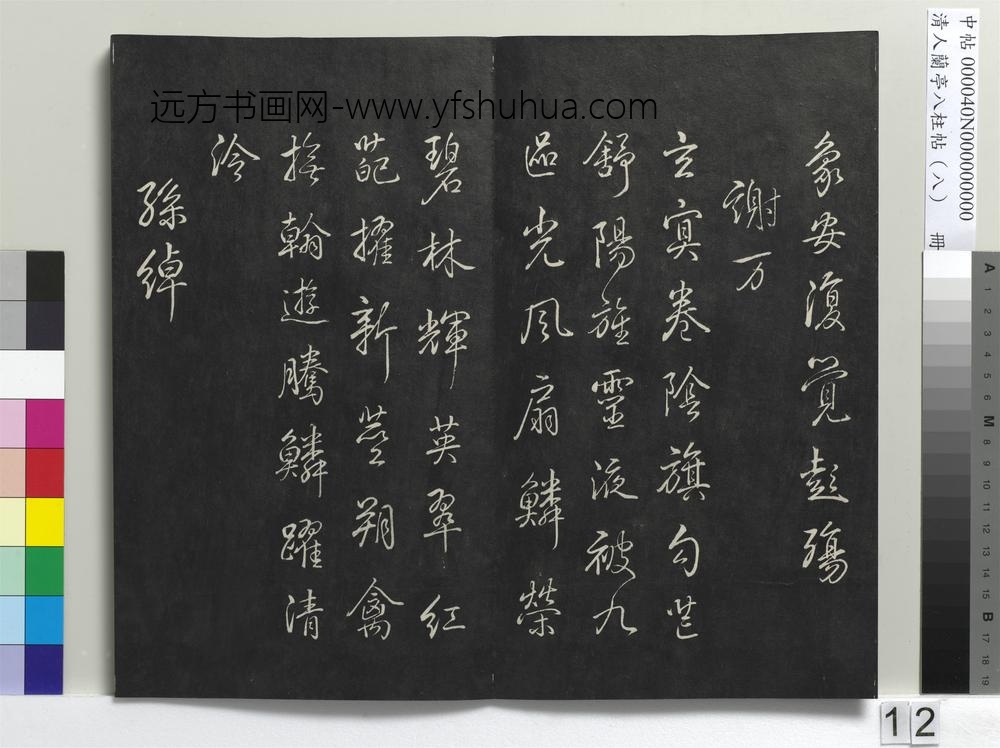 远方书画网-www.yfshuhua.com
象安復覺彭殤
謝万
玄冥卷陰旗勾芒
舒陽旌靈液被九
區光風扇鱗榮
碧林輝英翠紅
葩擢新莖翔禽
撫翰遊騰鱗躍清
泠
孫綽
中帖 000040N000000000
清人蘭亭八柱帖（八） 冊
A 1 2 3 4 5 6 M 8 9 10 11 12 13 14 15 B 17 18 19
12